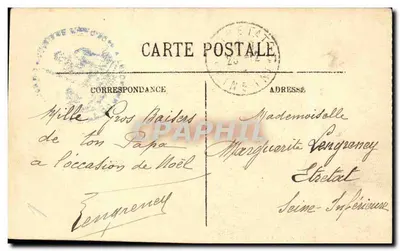 CARTE POSTALE
ETRETAT
CORRESPONDANCE
ADRESSE
Mille Gros Baisers
de ton Papa
a l'occasion de Noël
Lengreney
Mademoiselle
Marguerite Lengreney
Etretat
Seine-Inférieure